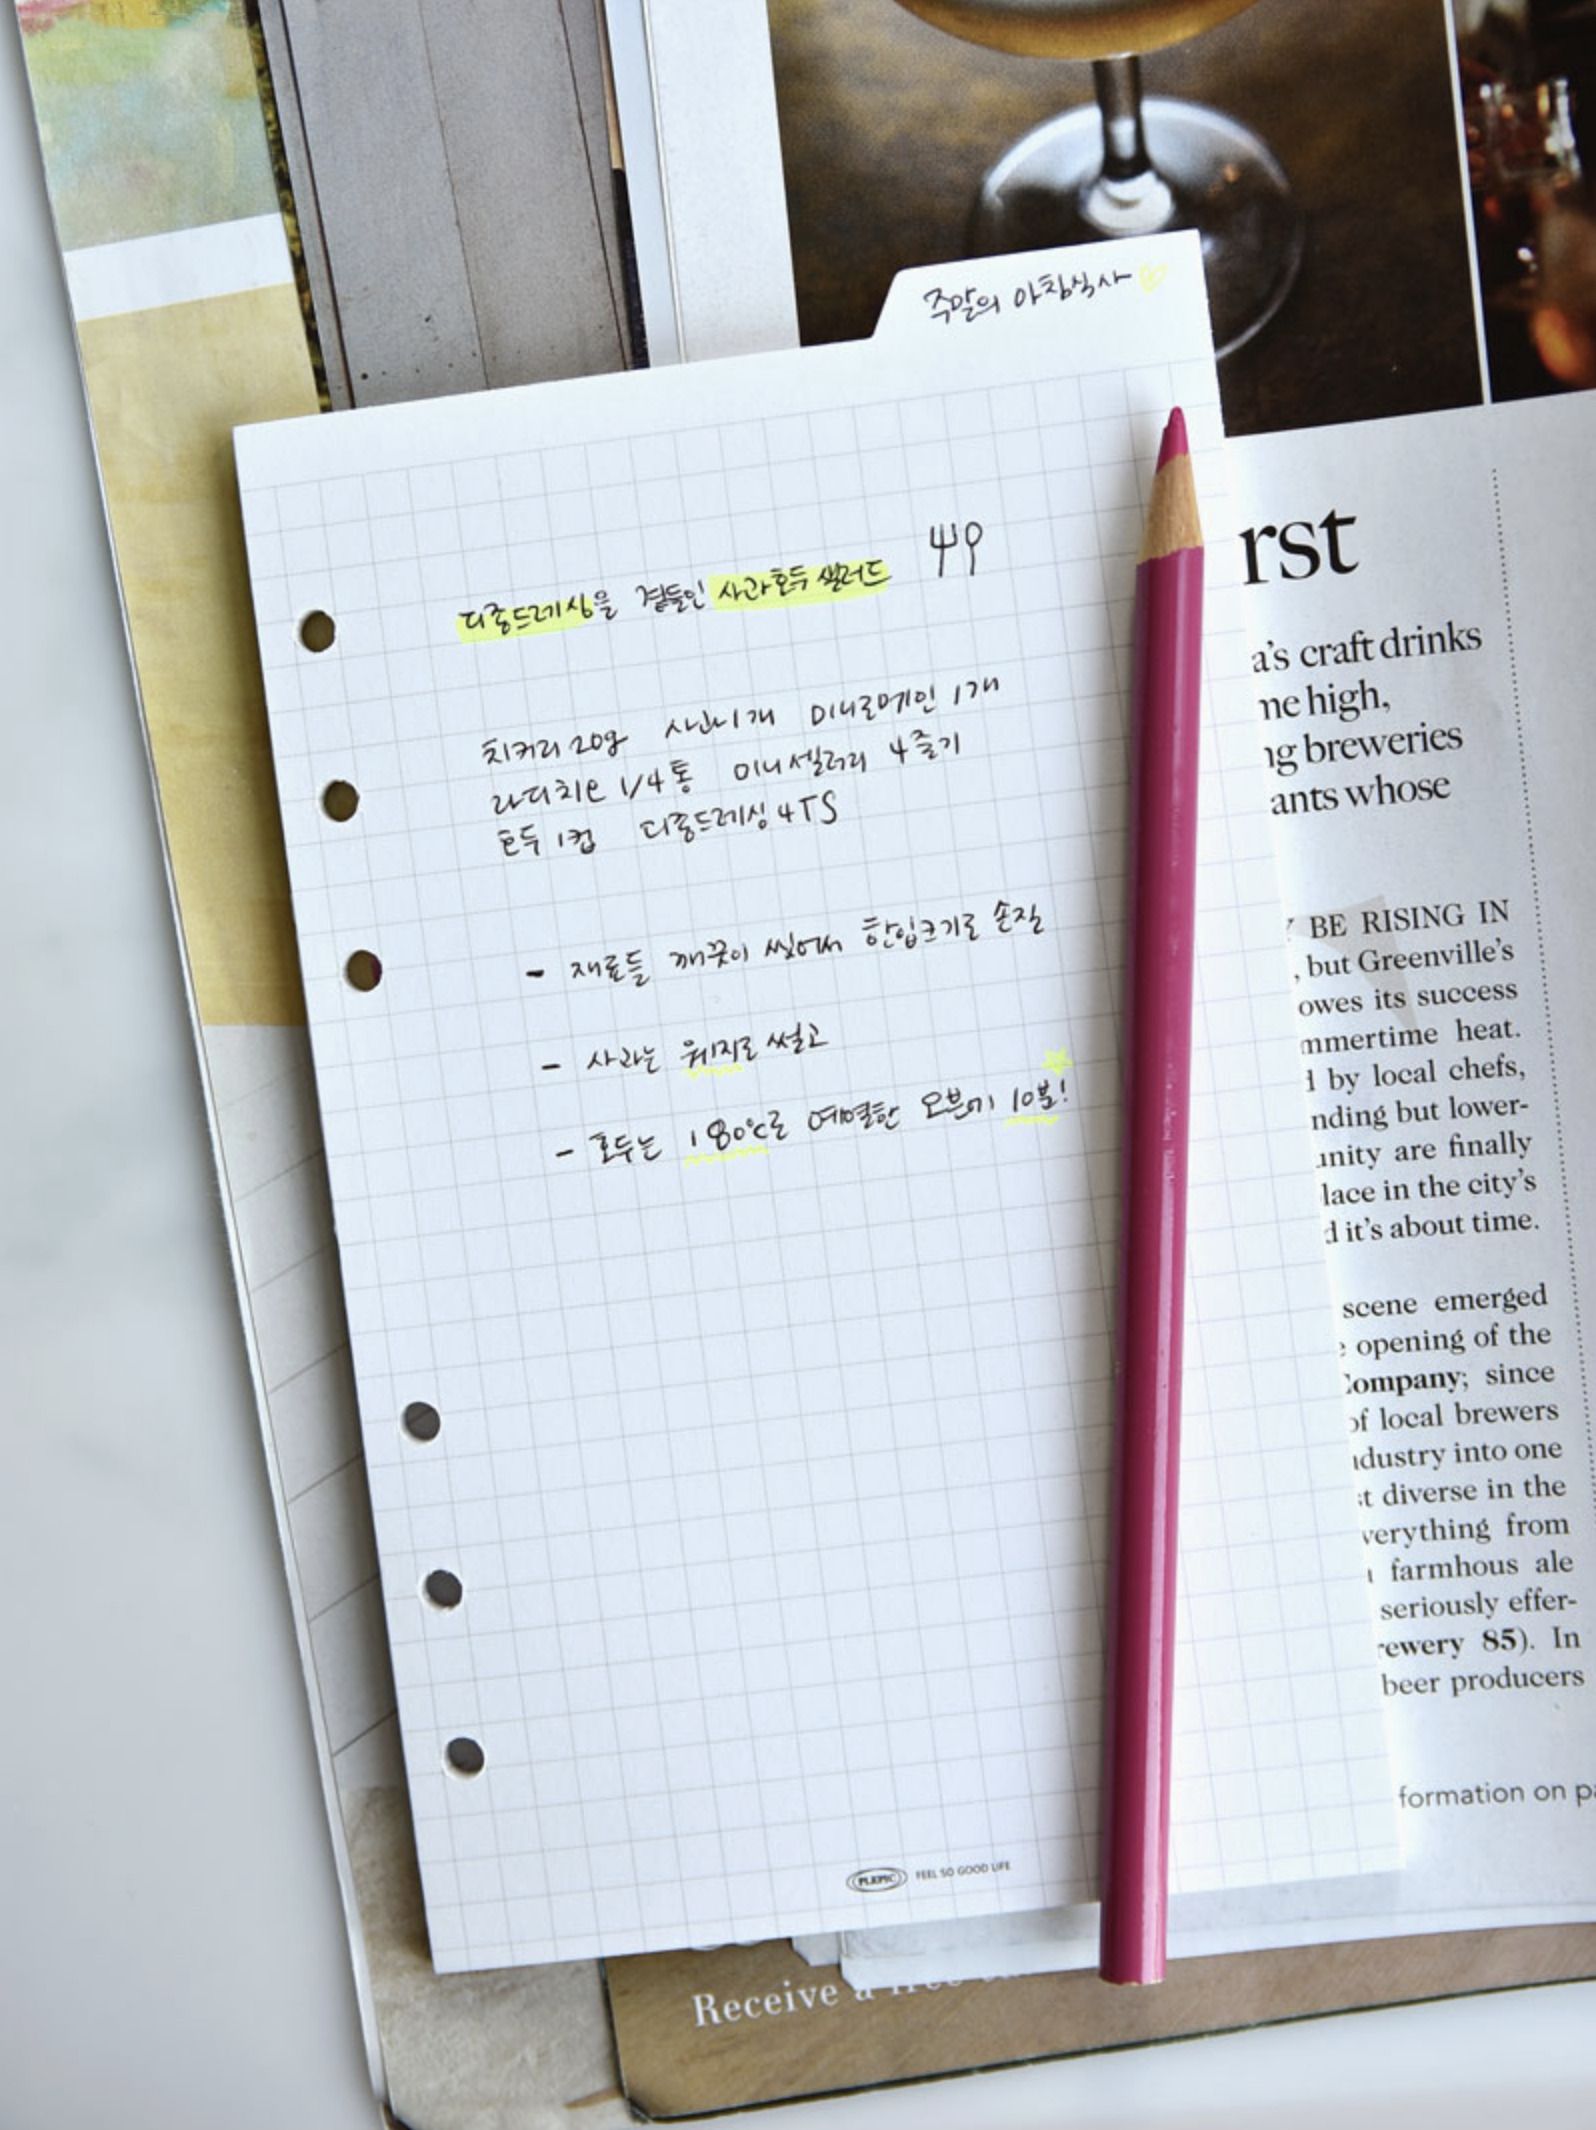 주말의 아침식사
디종드레싱을 곁들인 사과호두샐러드
치커리 20g 사과 1개 미니로메인 1개
라디치오 1/4통 미니셀러리 4줄기
호두 1컵 디종드레싱 4TS
- 재료들 깨끗이 씻어서 한입크기로 손질
- 사과는 웨지로 썰고
- 호두는 180℃로 예열한 오븐에 10분!
FEEL SO GOOD LIFE
rst
a's craft drinks
me high,
ng breweries
ants whose
BE RISING IN
, but Greenville's
owes its success
mmertime heat.
d by local chefs,
nding but lower-
unity are finally
lace in the city's
d it's about time.
scene emerged
e opening of the
Company; since
of local brewers
ndustry into one
st diverse in the
verything from
farmhous ale
seriously effer-
rewery 85). In
beer producers
formation on pa
Receive a free